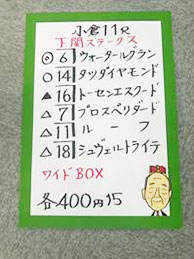 小倉11R
下関ステークス
◎6 ウォータールグラン
○14 タツダイヤモンド
▲16 トーセンエスクード
△7 プロスペリダード
△11 ルーフ
△18 シュヴェルトライテ
ワイドBOX
各400円15